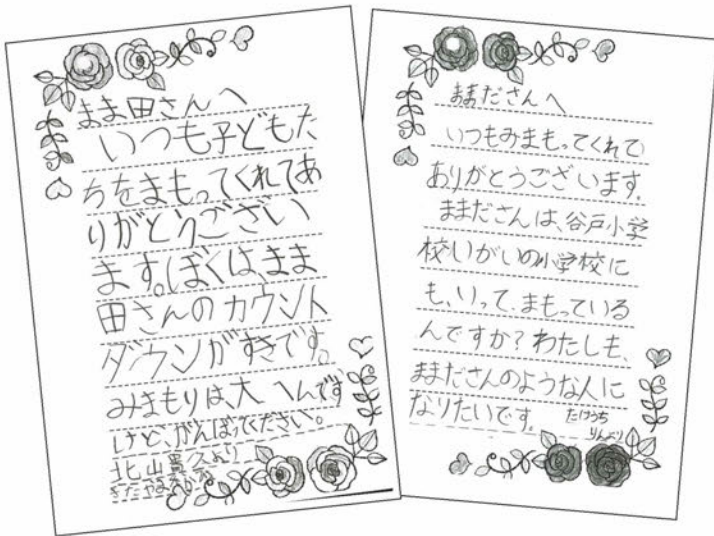 まま田さんへ
いつも子どもた
ちをまもってくれてあ
りがとうござい
ます。ぼくは、まま
田さんのカウント
ダウンがすきです。
みまもりは、大へんです
けど、がんばってください。
北山貴久より
きたやまたかひさ
ままださんへ
いつもみまもってくれて
ありがとうございます。
ままださんは、谷戸小学
校いがいの小学校に
も、いって、まもっている
んですか?わたしも、
ままださんのような人に
なりたいです。
たけうち
りんより